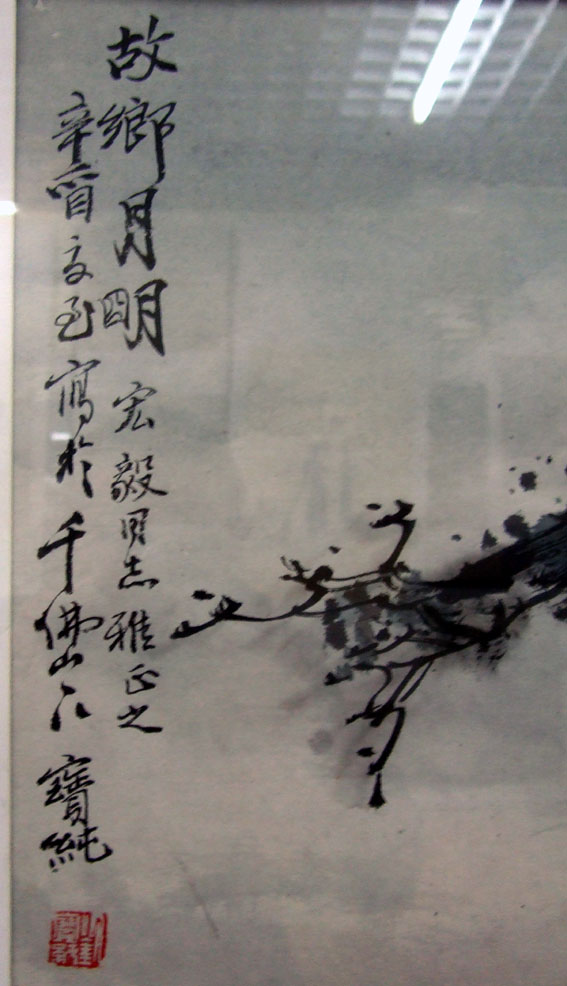 故鄉月明 宏毅同志雅正之
辛酉夏至寫於千佛山下 寶純